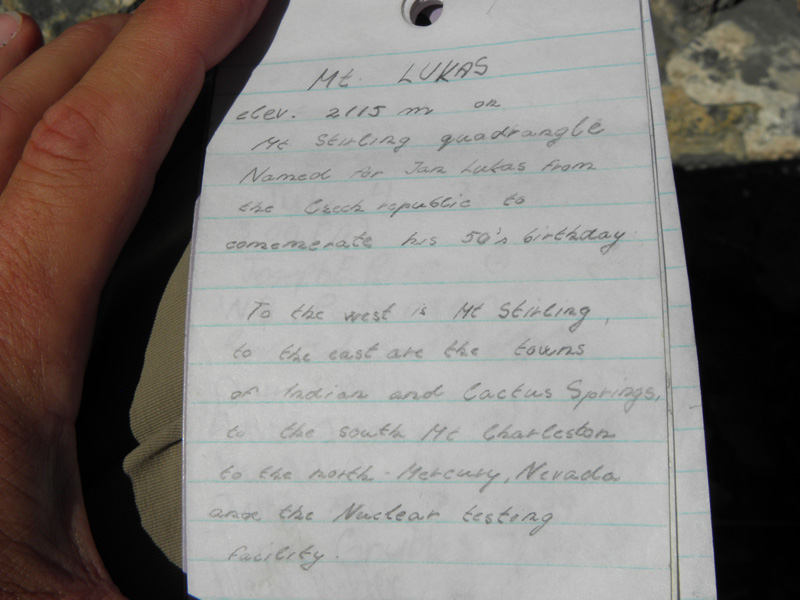 Mt. LUKAS
elev. 2115 m on
Mt Stirling quadrangle
Named for Jan Lukas from
the Czech republic to
comemerate his 50's birthday
To the west is Mt Stirling,
to the east are the towns
of Indian and Cactus Springs,
to the south Mt Charleston
to the north - Mercury, Nevada
and the Nuclear testing
facility.